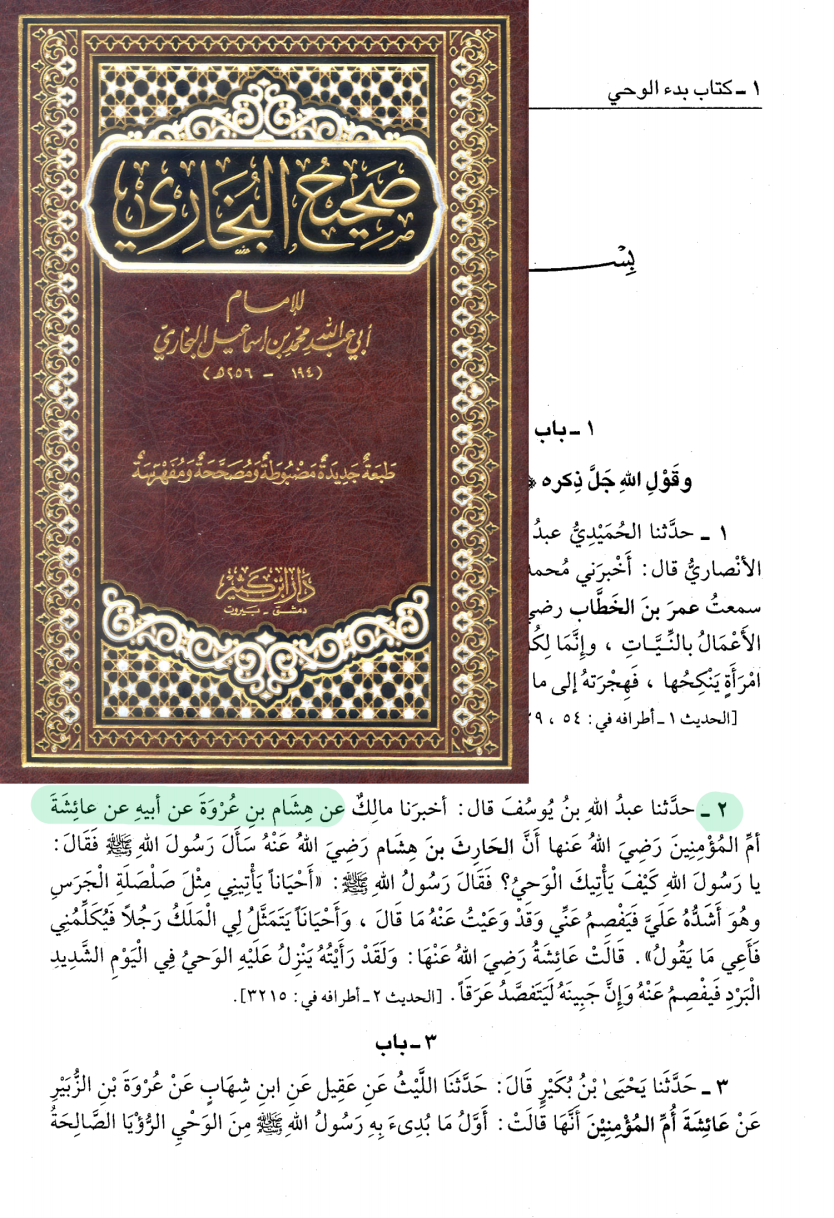 ١ ـ كتاب بدء الوحي
صَحِيحُ البُخَارِي
للإمام
أبي عبد الله محمد بن اسماعيل البخاري
(١٩٤ - ٢٥٦هـ)
طَبعَةٌ جَدِيدَةٌ مَضْبُوطَةٌ وَمُصَحَّحَةٌ وَمُفَهْرَسَةٌ
دَارُ ابْن كَثِير
دمشق - بيروت
بِسْـ
١ ـ باب
وقَوْلِ اللهِ جَلَّ ذِكره ﴿
١ ـ حدَّثنا الحُمَيْدِيُّ عبدُ
الأنْصاريُّ قال: أَخْبرَني مُحمد
سمعتُ عمرَ بنَ الخَطَّاب رضي
الأَعْمَالُ بالنِّيَّـاتِ ، وإِنَّمَا لِكُـ
امْرَأَةٍ يَنْكِحُها ، فَهِجْرَتهُ إلى ما
[الحديث ١ ـ أطرافه في: ٥٤ ،
٢ ـ حدَّثنا عبدُ اللهِ بنُ يُوسُفَ قال: أخبرَنا مالكٌ عن هِشَام بنِ عُرْوَةَ عن أبيهِ عن عائِشَةَ
أمِّ المُؤْمِنِينَ رَضِيَ اللهُ عَنها أَنَّ الحَارِثَ بنَ هِشَام رَضِيَ اللهُ عَنْهُ سَأَلَ رَسُولَ اللهِ ﷺ فَقَالَ:
يا رَسُولَ اللهِ كَيْفَ يَأْتِيكَ الْوَحيُ؟ فَقَالَ رَسُولُ اللهِ ﷺ: «أَحْيَاناً يَأْتِينِي مِثْلَ صَلْصَلَةِ الْجَرَسِ
وهُوَ أَشَدُّهُ عَلَيَّ فَيَفْصِمُ عَنِّي وَقدْ وَعَيْتُ عَنْهُ مَا قالَ ، وَأَحْيَاناً يَتَمَثَّلُ لِي الْمَلَكُ رَجُلاً فَيُكَلِّمُنِي
فَأَعِي مَا يَقُولُ». قَالَتْ عَائِشَةُ رَضِيَ اللهُ عَنْهَا: وَلَقَدْ رَأَيْتُهُ يَنْزِلُ عَلَيْهِ الوَحيُ فِي الْيَوْمِ الشَّدِيدِ
الْبَرْدِ فَيفْصِمُ عَنْهُ وَإِنَّ جَبِينَهُ لَيَتَفصَّدُ عَرَقاً. [الحديث ٢ ـ أطرافه في: ٣٢١٥].
٣ ـ باب
٣ ـ حَدَّثَنا يَحْيَىٰ بْنُ بُكَيْرٍ قَالَ: حَدَّثَنَا اللَّيْثُ عَن عَقِيل عَنِ ابنِ شِهَابٍ عَنْ عُرْوَةَ بْنِ الزُّبَيْرِ
عَنْ عَائِشَةَ أُمِّ المُؤْمِنِيْنَ أَنَّهَا قالَتْ: أَوَّلُ مَا بُدِىءَ بِهِ رَسُولُ اللهِ ﷺ مِنَ الوَحْيِ الرُّؤْيَا الصَّالِحَةُ